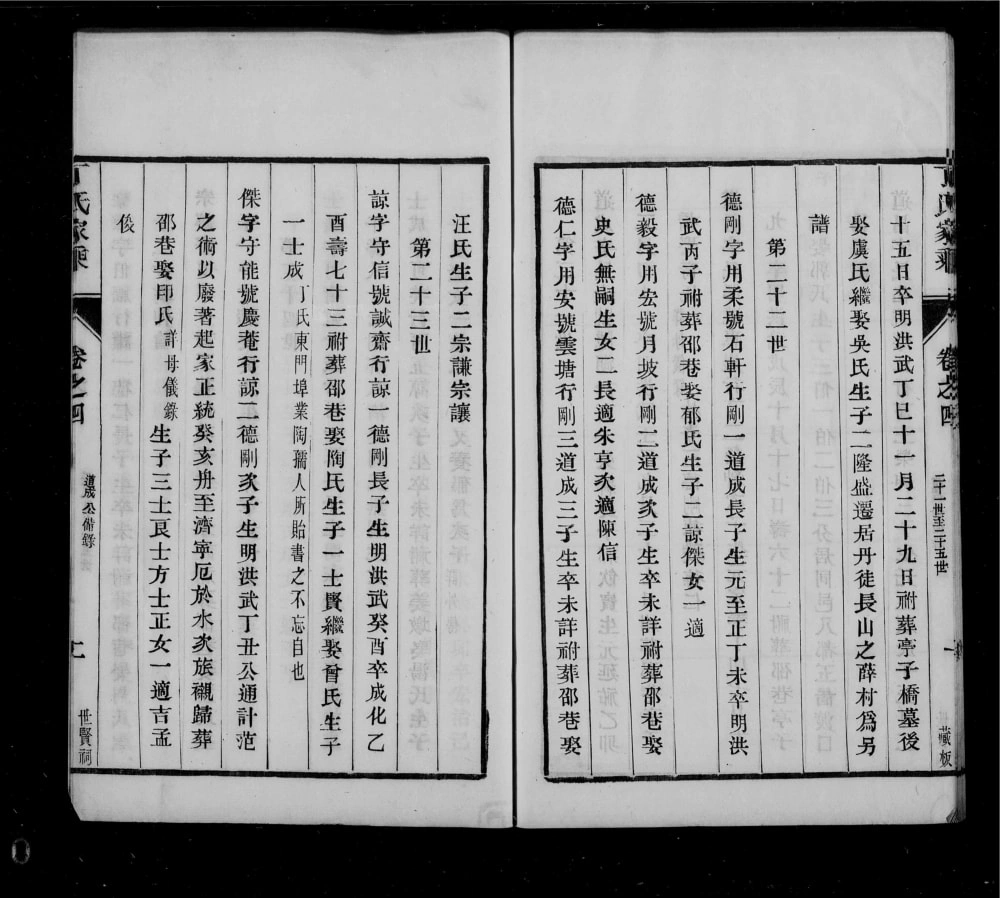 十五日卒明洪武丁巳十一月二十九日祔葬亭子橋墓後
娶虞氏繼娶吳氏生子二隆盛遷居丹徒長山之薛村爲另
譜
第二十二世
德剛字用柔號石軒行剛一道成長子生元至正丁未卒明洪
武丙子祔葬邵巷娶郁氏生子二諒傑女一適
德毅字用宏號月坡行剛二道成次子生卒未詳祔葬邵巷娶
史氏無嗣生女二長適朱亨次適陳信
德仁字用安號雲塘行剛三道成三子生卒未詳祔葬邵巷娶
氏家乘
卷之四
二十一世至二十五世
一
藏板
汪氏生子二宗謙宗讓
第二十三世
諒字守信號誠齋行諒一德剛長子生明洪武癸酉卒成化乙
酉壽七十三祔葬邵巷娶陶氏生子一士賢繼娶曾氏生子
一士成丁氏東門埠業陶孺人所貽書之不忘自也
傑字守能號慶菴行諒二德剛次子生明洪武丁丑公通計范
之術以廢著起家正統癸亥舟至濟寧厄於水次族襯歸葬
邵巷娶印氏詳母儀錄生子三士艮士方士正女一適吉孟
俊
氏家乘
卷之四
道成公備錄
七
世賢祠